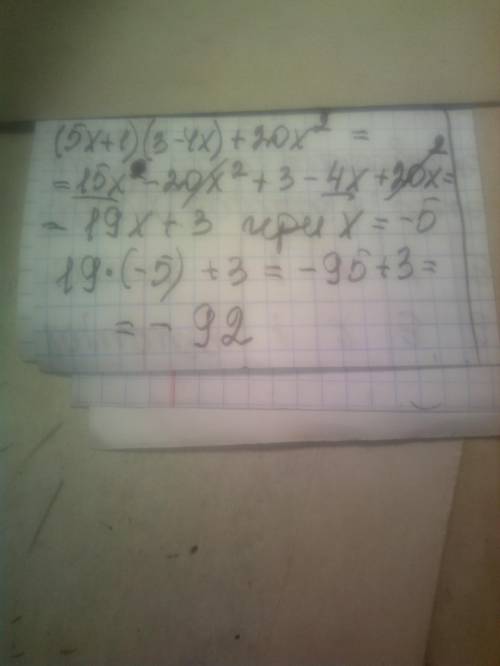 (5x+1)(3-4x)+20x² =
= 15x - 20x² + 3 - 4x + 20x² =
= 19x + 3 при x = -5
19·(-5) + 3 = -95+3 =
= - 92